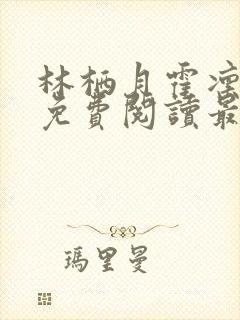 林栖月霍凛
免費閱讀最
瑪里曼